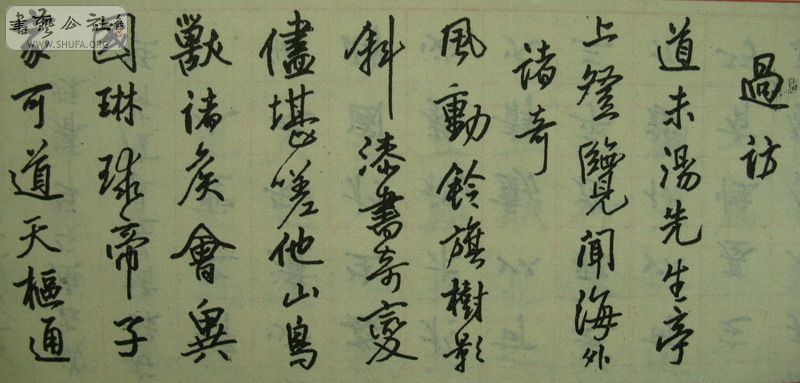 過訪
道未湯先生亭
上登覽聞海外
諸奇
風動鈴旗樹影
斜漆書奇變
儘堪嗟他山鳥
獸諸侯會異
國琳球帝子
家可道天樞通
書藝公社
WWW.SHUFA.ORG